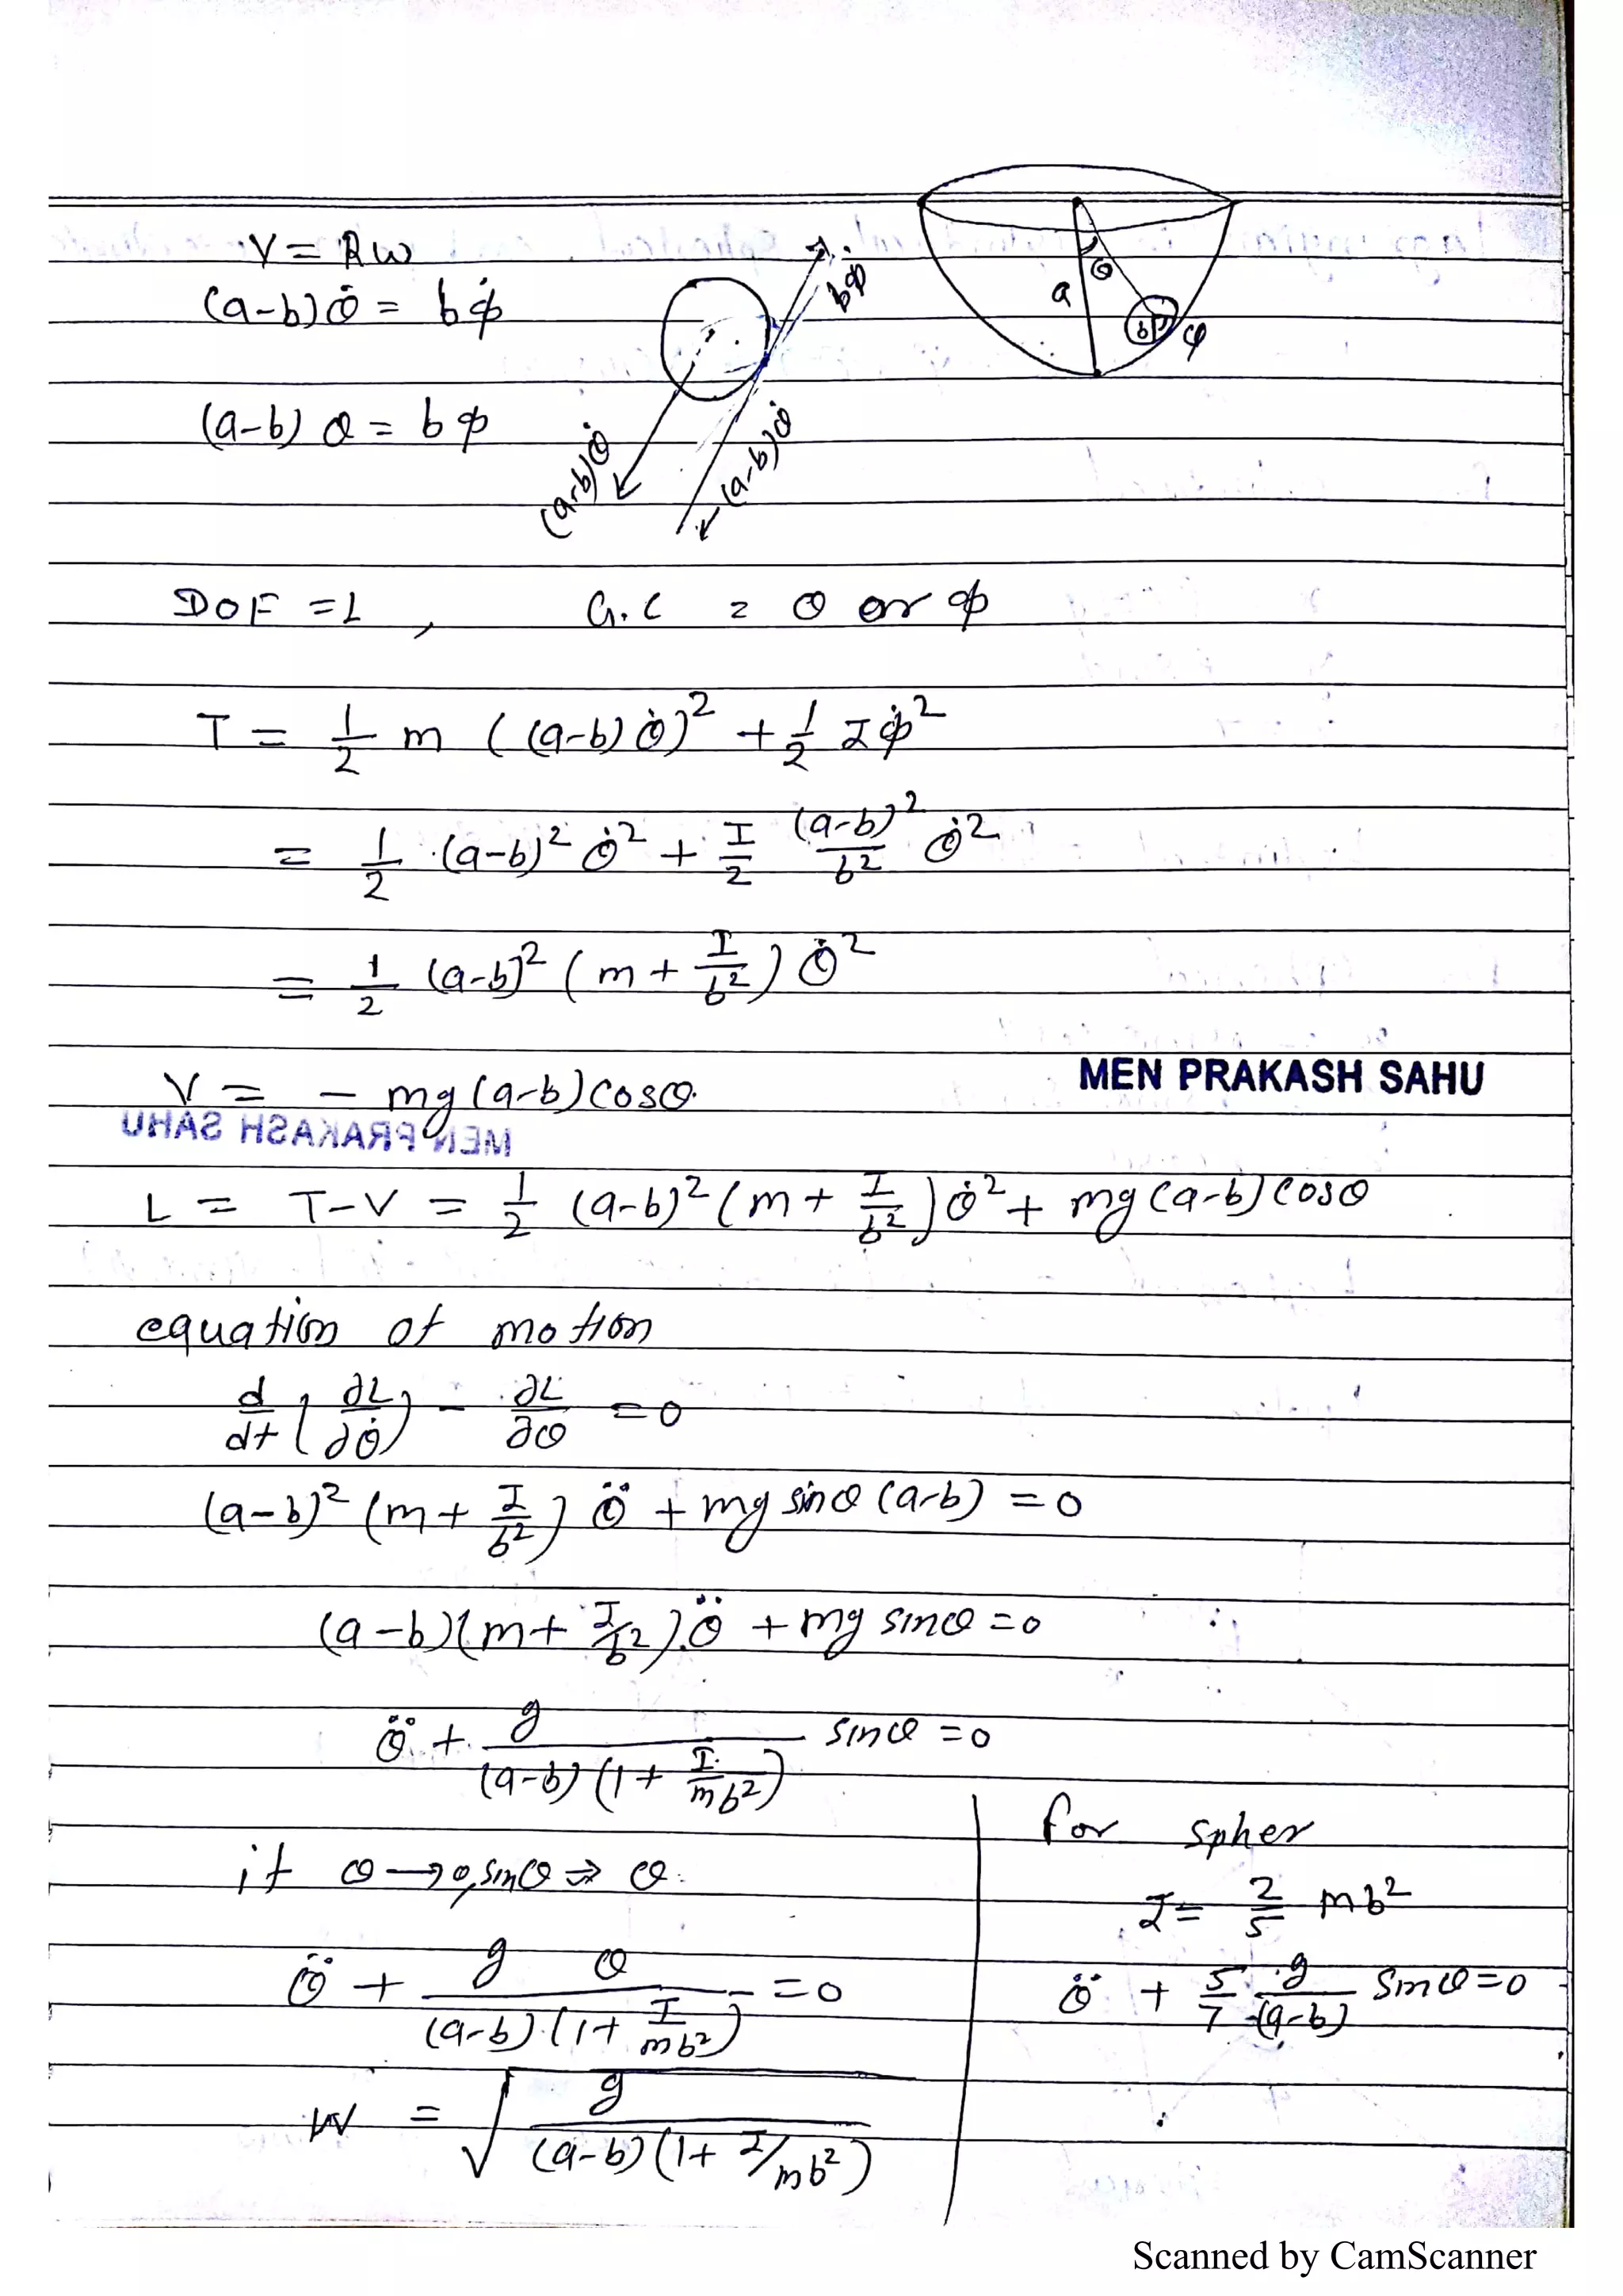 V = Rω
(a-b)θ̇ = bφ̇
(a-b) θ = bφ
bφ̇
(a-b)θ̇
(a-b)θ̇
θ
a
b
φ
DOF = 1 , G.C = θ or φ
T = 1/2 m ((a-b)θ̇)² + 1/2 Iφ̇²
= 1/2 (a-b)² θ̇² + I/2 (a-b)²/b² θ̇²
= 1/2 (a-b)² (m + I/b²) θ̇²
MEN PRAKASH SAHU
V = - mg(a-b)cosθ
MEN PRAKASH SAHU
L = T-V = 1/2 (a-b)² (m + I/b²) θ̇² + mg(a-b)cosθ
equation of motion
d/dt (∂L/∂θ̇) - ∂L/∂θ = 0
(a-b)² (m + I/b²) θ̈ + mg sinθ (a-b) = 0
(a-b)(m + I/b²) θ̈ + mg sinθ = 0
θ̈ + g/((a-b)(1 + I/mb²)) sinθ = 0
if θ → 0, sinθ ⇒ θ
θ̈ + gθ/((a-b)(1 + I/mb²)) = 0
W = √(g/((a-b)(1 + I/mb²)))
for spher
I = 2/5 mb²
θ̈ + 5/7 g/(a-b) sinθ = 0
Scanned by CamScanner